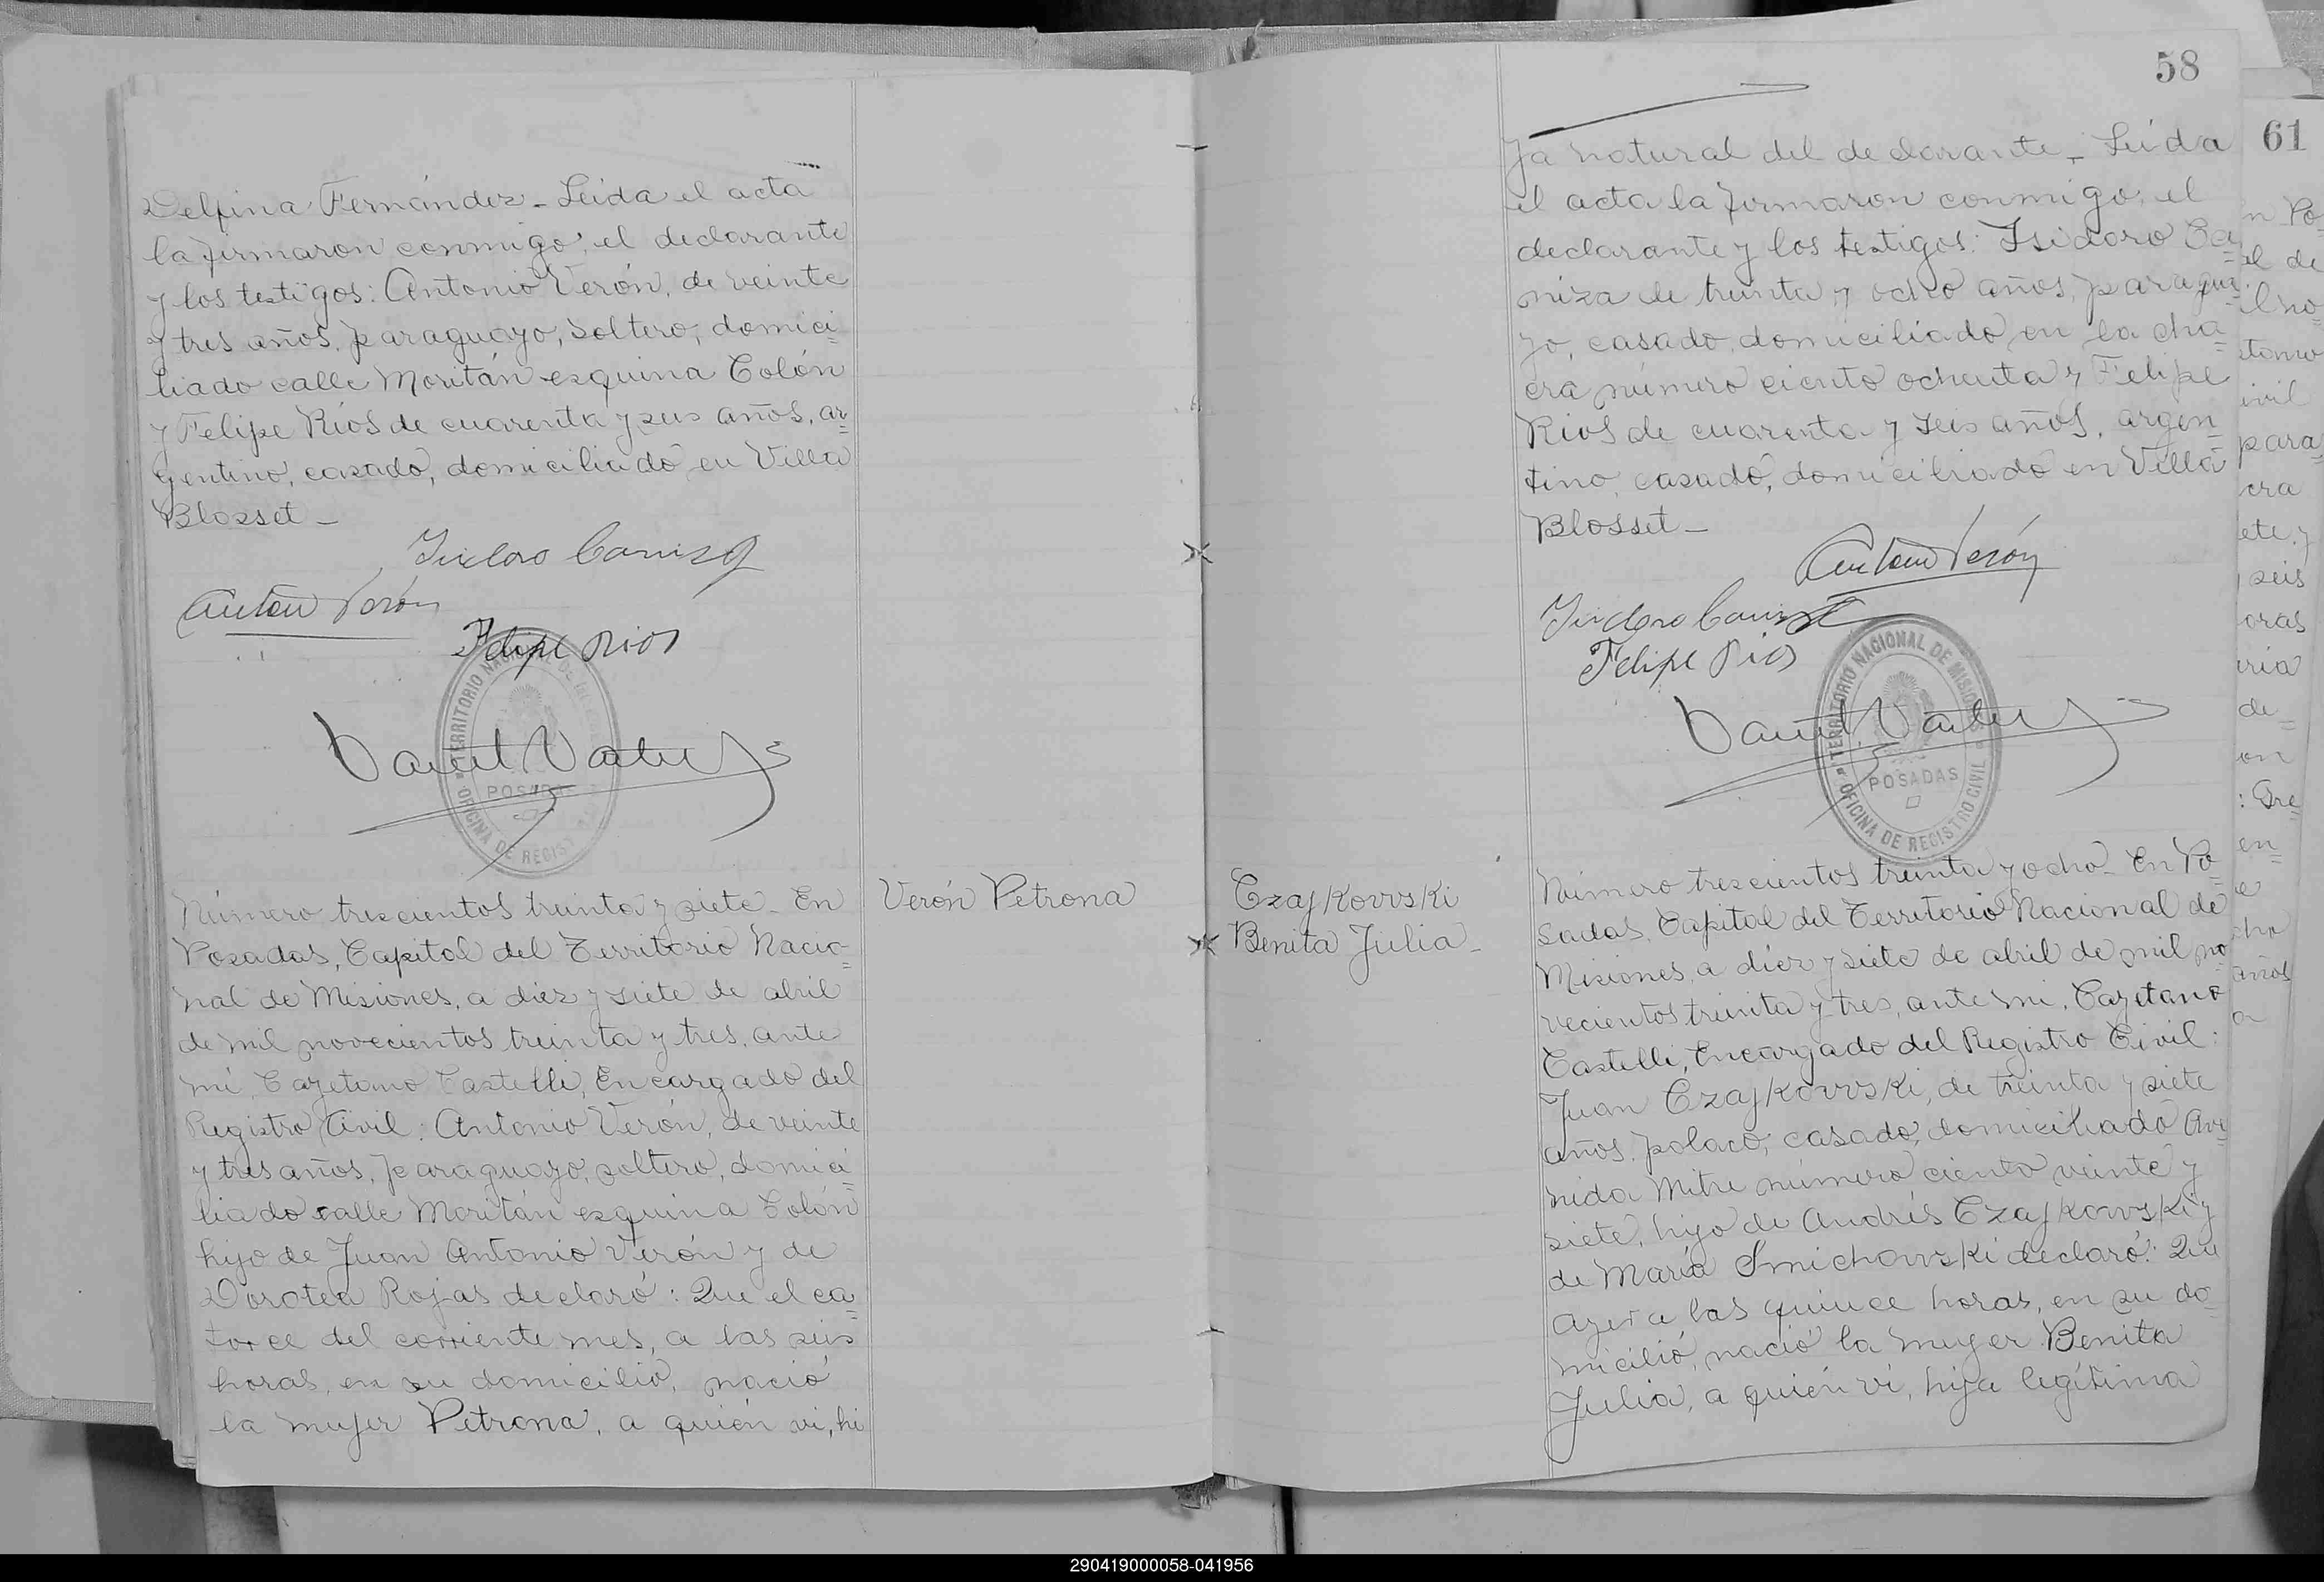 Delfina Fernández - Leida el acta
la firmaron conmigo, el declarante
y los testigos: Antonio Verón, de veinte
y tres años, paraguayo, soltero, domici=
liado calle Moritán esquina Colón
y Felipe Ríos de cuarenta y seis años, ar=
gentino, casado, domiciliado en Villa
Blosset -
Isidoro Caniza
Anton Verón
Felipe Rios
TERRITORIO NACIONAL DE
POSADAS
OFICINA DE REGIS
Número trescientos treinta y siete - En
Posadas, Capital del Territorio Nacio=
nal de Misiones, a diez y siete de abril
de mil novecientos treinta y tres, ante
mi, Cayetano Castelli, Encargado del
Registro Civil: Antonio Verón, de veinte
y tres años, paraguayo, soltero, domici=
liado calle Moritán esquina Colón
hijo de Juan Antonio Verón y de
Dorotea Rojas declaró: Que el ca=
torce del corriente mes, a las seis
horas, en su domicilio, nació
la mujer Petrona, a quién vi, hi
Verón Petrona
58
ja natural del declarante - Leida
el acta la firmaron conmigo, el
declarante y los testigos: Isidoro Ca=
niza de treinta y ocho años, paragua=
yo, casado, domiciliado en la cha=
cra número ciento ochenta y Felipe
Rios de cuarenta y seis años, argen=
tino, casado, domiciliado en Villa
Blosset -
Anton Verón
Isidoro Caniza
Felipe Rios
TERRITORIO NACIONAL DE MISIONES
POSADAS
OFICINA DE REGISTRO CIVIL
Czajkovvski
Benita Julia -
Número trescientos treinta y ocho - En Po=
sadas, Capital del Territorio Nacional de
Misiones, a diez y siete de abril de mil no=
vecientos treinta y tres, ante mi, Cayetano
Castelli, Encargado del Registro Civil:
Juan Czajkovvski, de treinta y siete
años, polaco, casado, domiciliado Ave=
nida Mitre número ciento veinte y
siete, hijo de Andrés Czajkovvski y
de María Smichovvski declaró: Que
ayer a las quince horas, en su do=
micilio, nació la mujer Benita
Julia, a quién vi, hija legítima
61
n Po=
al de
il no=
ivil
para=
cra
ete y
seis
oras
ria
de=
on
: Gre=
en=
cho
años
a
290419000058-041956